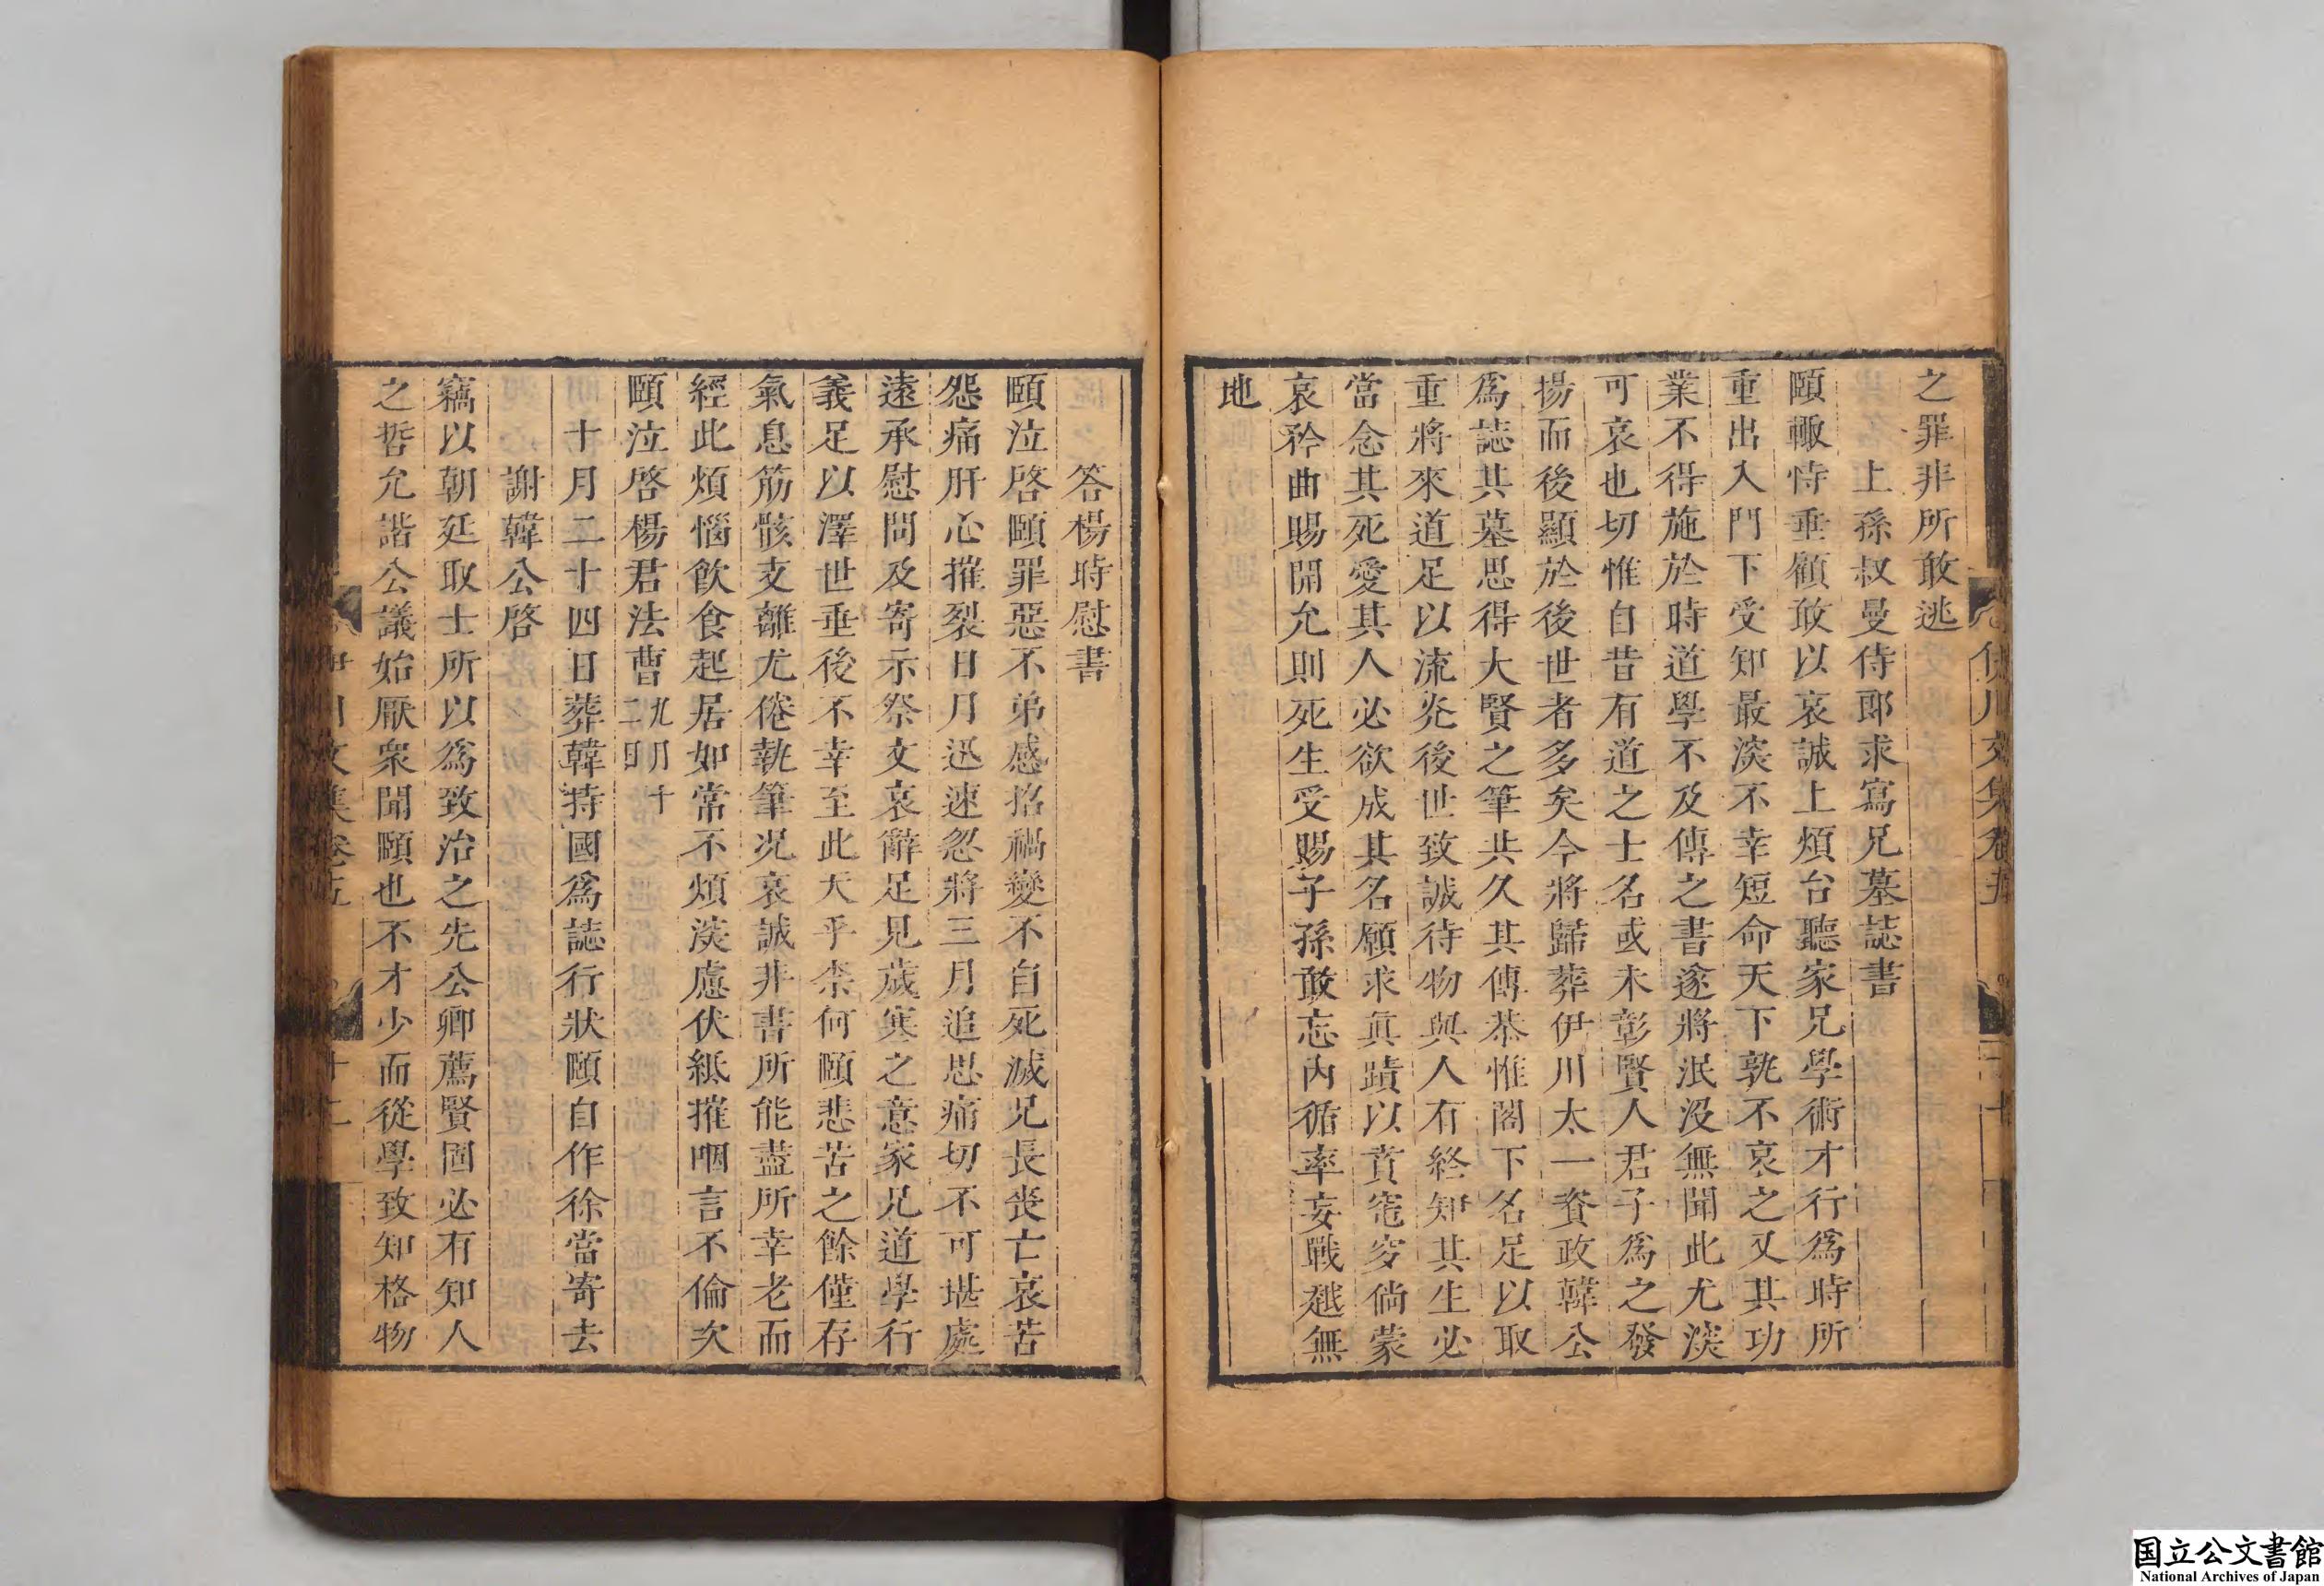 之罪非所敢逃
上孫叔曼侍郎求寫兄墓誌書
頤輙恃垂顧敢以哀誠上煩台聽家兄學術才行爲時所
重出入門下受知最深不幸短命天下孰不哀之又其功
業不得施於時道學不及傳之書遂將泯沒無聞此尤深
可哀也切惟自昔有道之士名或未彰賢人君子爲之發
揚而後顯於後世者多矣今將歸葬伊川太一資政韓公
爲誌其墓思得大賢之筆共久其傳恭惟閣下名足以取
重將來道足以流光後世致誠待物與人有終知其生必
當念其死愛其人必欲成其名願求眞蹟以賁窀穸倘蒙
哀矜曲賜開允則死生受賜子孫敢忘內循率妄戰越無
地
伊川文集卷五
答楊時慰書
頤泣啓頤罪惡不弟感招禍變不自死滅兄長喪亡哀苦
怨痛肝心摧裂日月迅速忽將三月追思痛切不可堪處
遠承慰問及寄示祭文哀辭足見歲寒之意家兄道學行
義足以澤世垂後不幸至此天乎柰何頤悲苦之餘僅存
氣息筋骸支離尤倦執筆况哀誠非書所能盡所幸老而
經此煩惱飲食起居如常不煩深慮伏紙摧咽言不倫次
頤泣啓楊君法曹九月十二日
十月二十四日葬韓持國爲誌行狀頤自作徐當寄去
謝韓公啓
竊以朝廷取士所以爲致治之先公卿薦賢固必有知人
之哲允諧公議始厭衆聞頤也不才少而從學致知格物
伊川文集卷五
十二
国立公文書館
National Archives of Japan